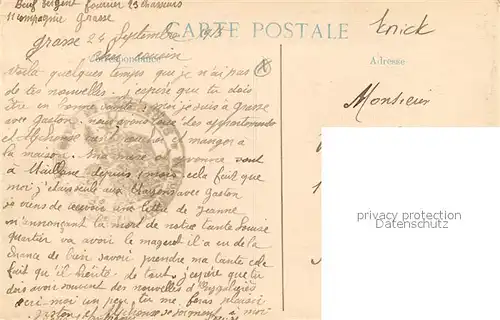 Beuf Sergent fourrier 23 Chasseurs
11 compagnie Grasse
CARTE POSTALE
Grasse 24 Septembre 1915
Correspondance
Cher cousin
Adresse
Voila quelques temps que je n'ai pas
de tes nouvelles. j'espère que tu dois
être en bonne santé, moi je suis à Grasse
avec Gaston, nous avons loué des appartements
et Alphonse vient coucher et manger a
la maison. Ma mère
à Maillane depuis 1 mois. cela fait que
moi j'étais seule aux avec Gaston
je viens de recevoir une lettre de Jeanne
m'annonçant la mort de notre tante Louise
quartier va avoir le magot il a eu de la
chance de bien savoir prendre ma tante cela
fait qu'il hérite de tout. j'espère que tu
dois avoir souvent des nouvelles d'
écris-moi un peu tu me feras plaisir
Gaston et Alphonse se joignent à moi
Monsieur
privacy protection
Datenschutz